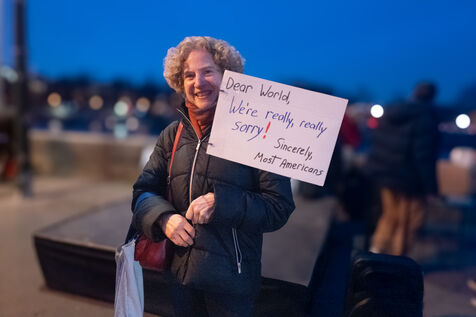 Dear World,
We're really, really
sorry!
Sincerely,
Most Americans